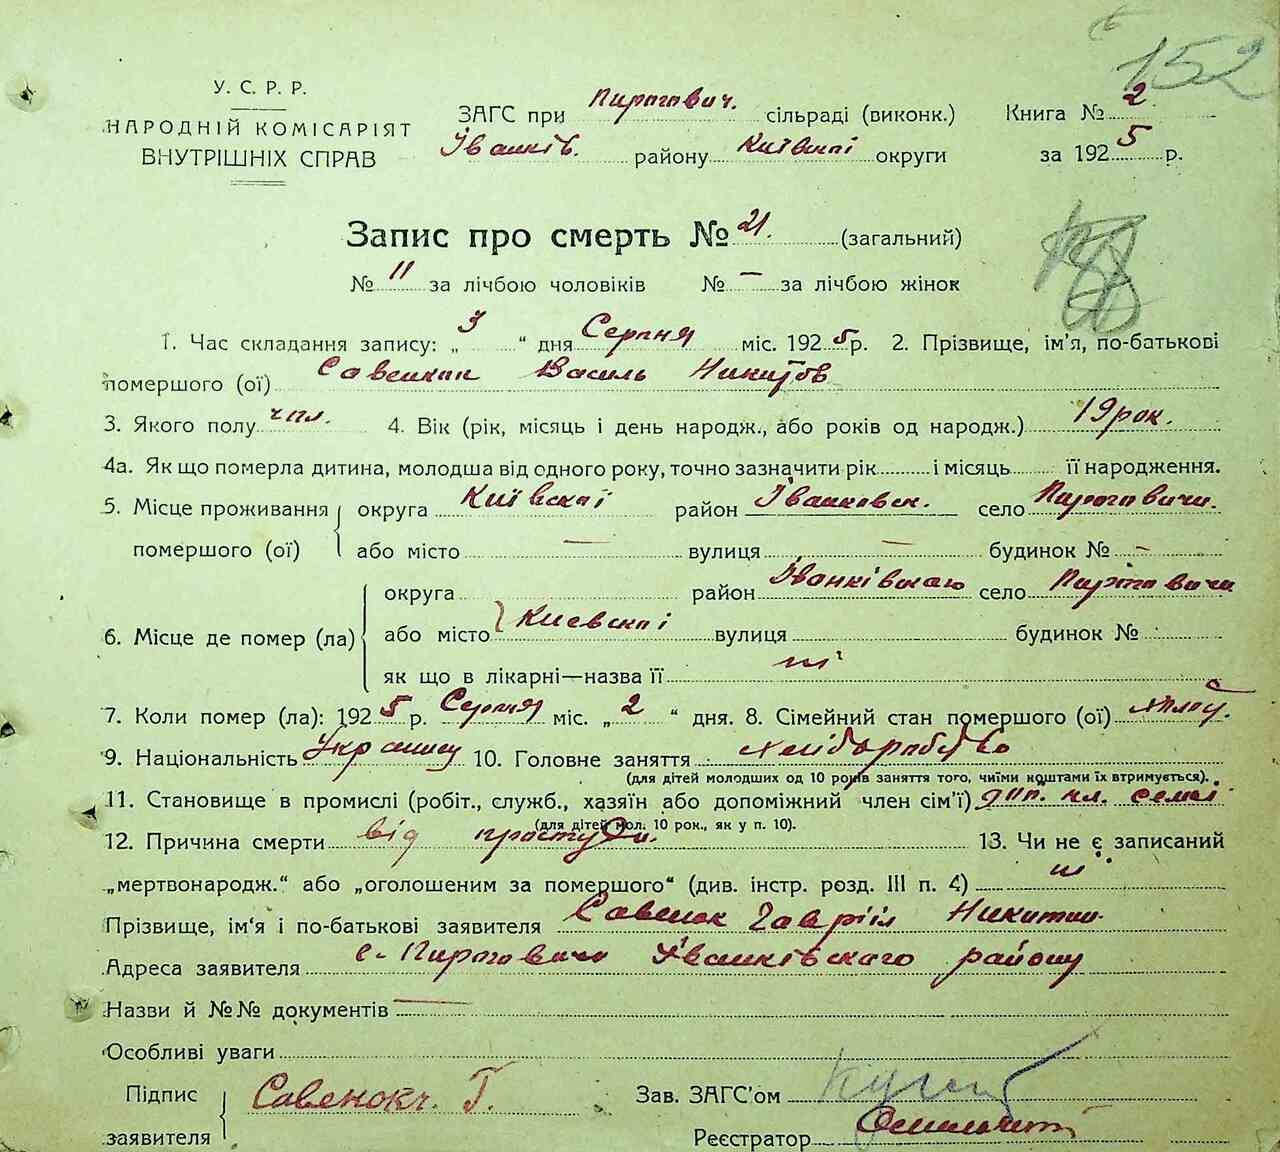 152
У. С. Р. Р.
НАРОДНІЙ КОМІСАРІЯТ
ВНУТРІШНІХ СПРАВ
ЗАГС при Пирогович. сільраді (виконк.)
Іванків. району Київскої округи
Книга № 2
за 1925 р.
Запис про смерть № 21. (загальний)
№ 11 за лічбою чоловіків № — за лічбою жінок
1. Час складання запису: „ 3 “ дня Серпня міс. 1925 р. 2. Прізвище, ім'я, по-батькові
помершого (ої) Василь Никитов
3. Якого полу чол. 4. Вік (рік, місяць і день народж., або років од народж.) 19 рок.
4а. Як що померла дитина, молодша від одного року, точно зазначити рік і місяць її народження.
5. Місце проживання помершого (ої) округа Київскої район Іванковск. село Пироговичи.
або місто — вулиця — будинок № —
6. Місце де помер (ла) округа район Іванківскаго село Пироговичи
або місто Киевскої вулиця будинок №
як що в лікарні—назва її ні
7. Коли помер (ла): 1925 р. Серпня міс. „ 2 “ дня. 8. Сімейний стан помершого (ої)
9. Національність 10. Головне заняття хліборобство
(для дітей молодших од 10 років заняття того, чиїми коштами їх втримується).
11. Становище в промислі (робіт., служб., хазяїн або допоміжний член сім'ї) доп. чл. семьї
(для дітей мол. 10 рок., як у п. 10).
12. Причина смерти від простуди. 13. Чи не є записаний
„мертвонародж.“ або „оголошеним за помершого“ (див. інстр. розд. III п. 4) ні
Прізвище, ім'я і по-батькові заявителя Савенок Гавриіл Никитин
Адреса заявителя с. Пироговичи Іванківского району
Назви й №№ документів —
Особливі уваги
Підпис заявителя Г.
Зав. ЗАГС'ом
Реєстратор